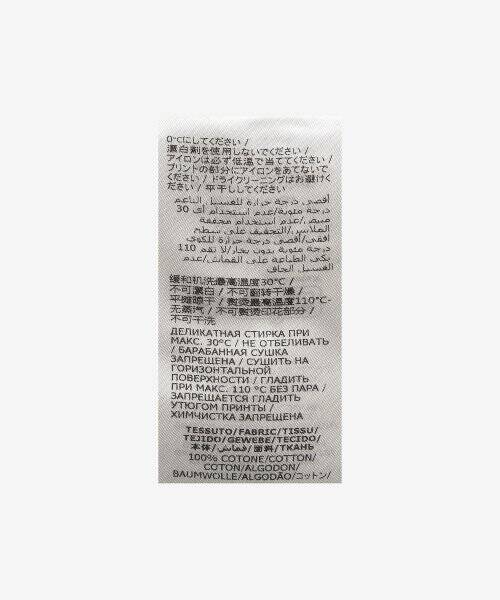 0℃にしてください /
漂白剤を使用しないでください /
アイロンは必ず低温で当ててください /
プリントの部分にアイロンをあてないで
ください / ドライクリーニングはお避けく
ださい / 平干ししてください /
أقصى درجة حرارة للغسيل الناعم
30 درجة مئوية/عدم استخدام أي
مبيض/عدم استخدام مجففة
الملابس/التجفيف على سطح
أفقي/أقصى درجة حرارة للكوي
110 درجة مئوية بدون بخار/لا تقم
بكي الطباعة على القماش/عدم
الغسيل الجاف
缓和机洗最高温度30℃ /
不可漂白 / 不可翻转干燥 /
平摊晾干 / 熨烫最高温度110℃-
无蒸汽 / 不可熨烫印花部分 /
不可干洗
ДЕЛИКАТНАЯ СТИРКА ПРИ
МАКС. 30°C / НЕ ОТБЕЛИВАТЬ
/ БАРАБАННАЯ СУШКА
ЗАПРЕЩЕНА / СУШИТЬ НА
ГОРИЗОНТАЛЬНОЙ
ПОВЕРХНОСТИ / ГЛАДИТЬ
ПРИ МАКС. 110 °C БЕЗ ПАРА /
ЗАПРЕЩАЕТСЯ ГЛАДИТЬ
УТЮГОМ ПРИНТЫ /
ХИМЧИСТКА ЗАПРЕЩЕНА
TESSUTO/FABRIC/TISSU/
TEJIDO/GEWEBE/TECIDO/
本体/قماش/面料/ТКАНЬ
100% COTONE/COTTON/
COTON/ALGODON/
BAUMWOLLE/ALGODÃO/コットン/